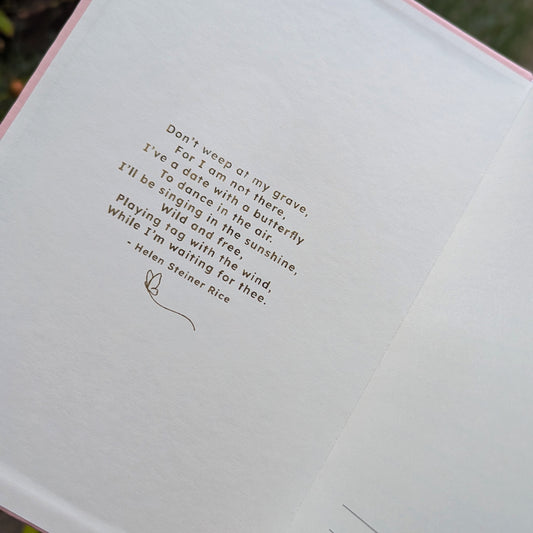 Don't weep at my grave,
For I am not there,
I've a date with a butterfly
To dance in the air.
I'll be singing in the sunshine,
Wild and free,
Playing tag with the wind,
While I'm waiting for thee.
- Helen Steiner Rice